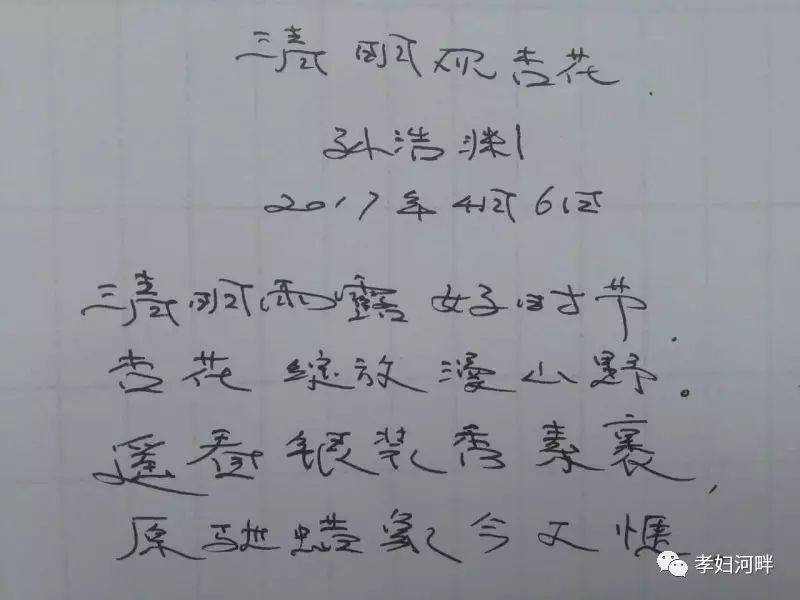 清明观杏花
孙浩渊
2017年4月6日
清明雨露好时节.
杏花绽放漫山野。
遥看银装秀素裹,
原驰蜡象今又
孝妇河畔